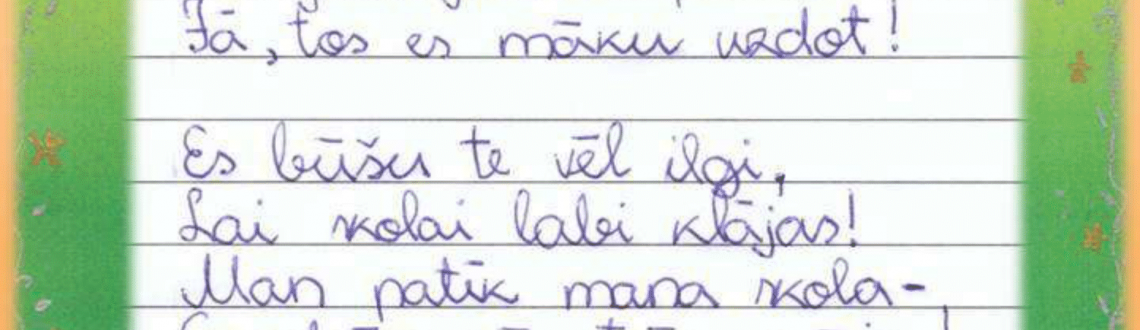 Jā, tos es māku uzdot!
Es būšu te vēl ilgi,
Lai skolai labi klājas!
Man patīk mana skola-